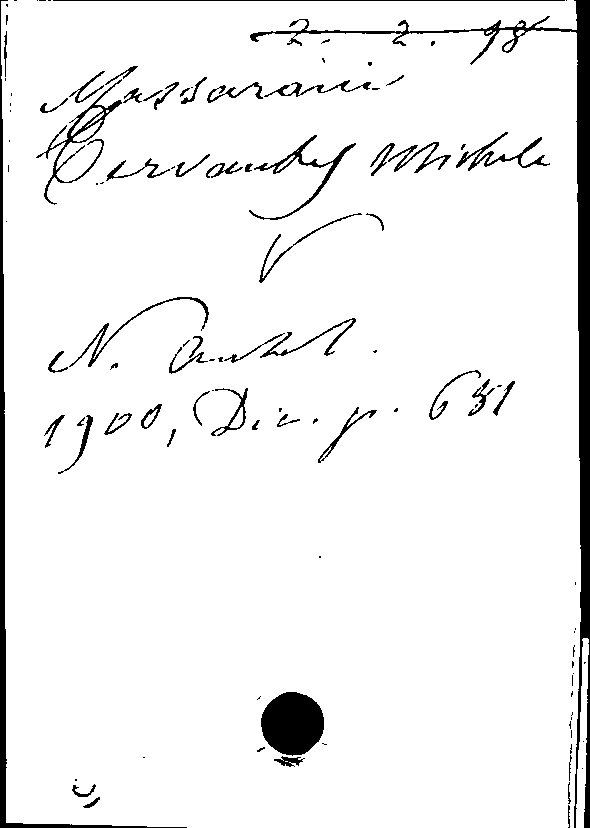 2. 2. 98
Massarani
Cervantes Michele
V
N. Antol.
1900, Dic. p. 651